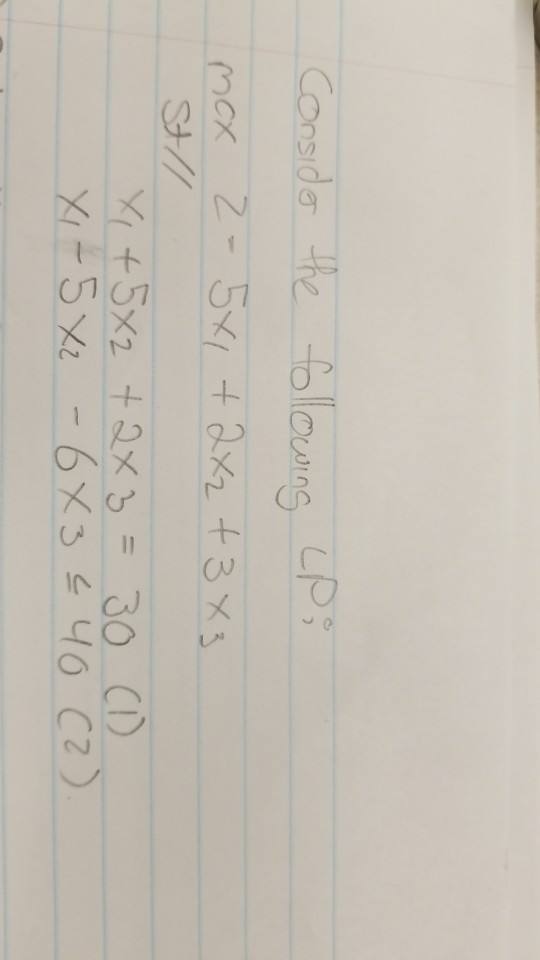 Consider the following LP:
max Z = 5x₁ + 2x₂ + 3x₃
St//
x₁ + 5x₂ + 2x₃ = 30 (1)
x₁ - 5x₂ - 6x₃ ≤ 40 (2)